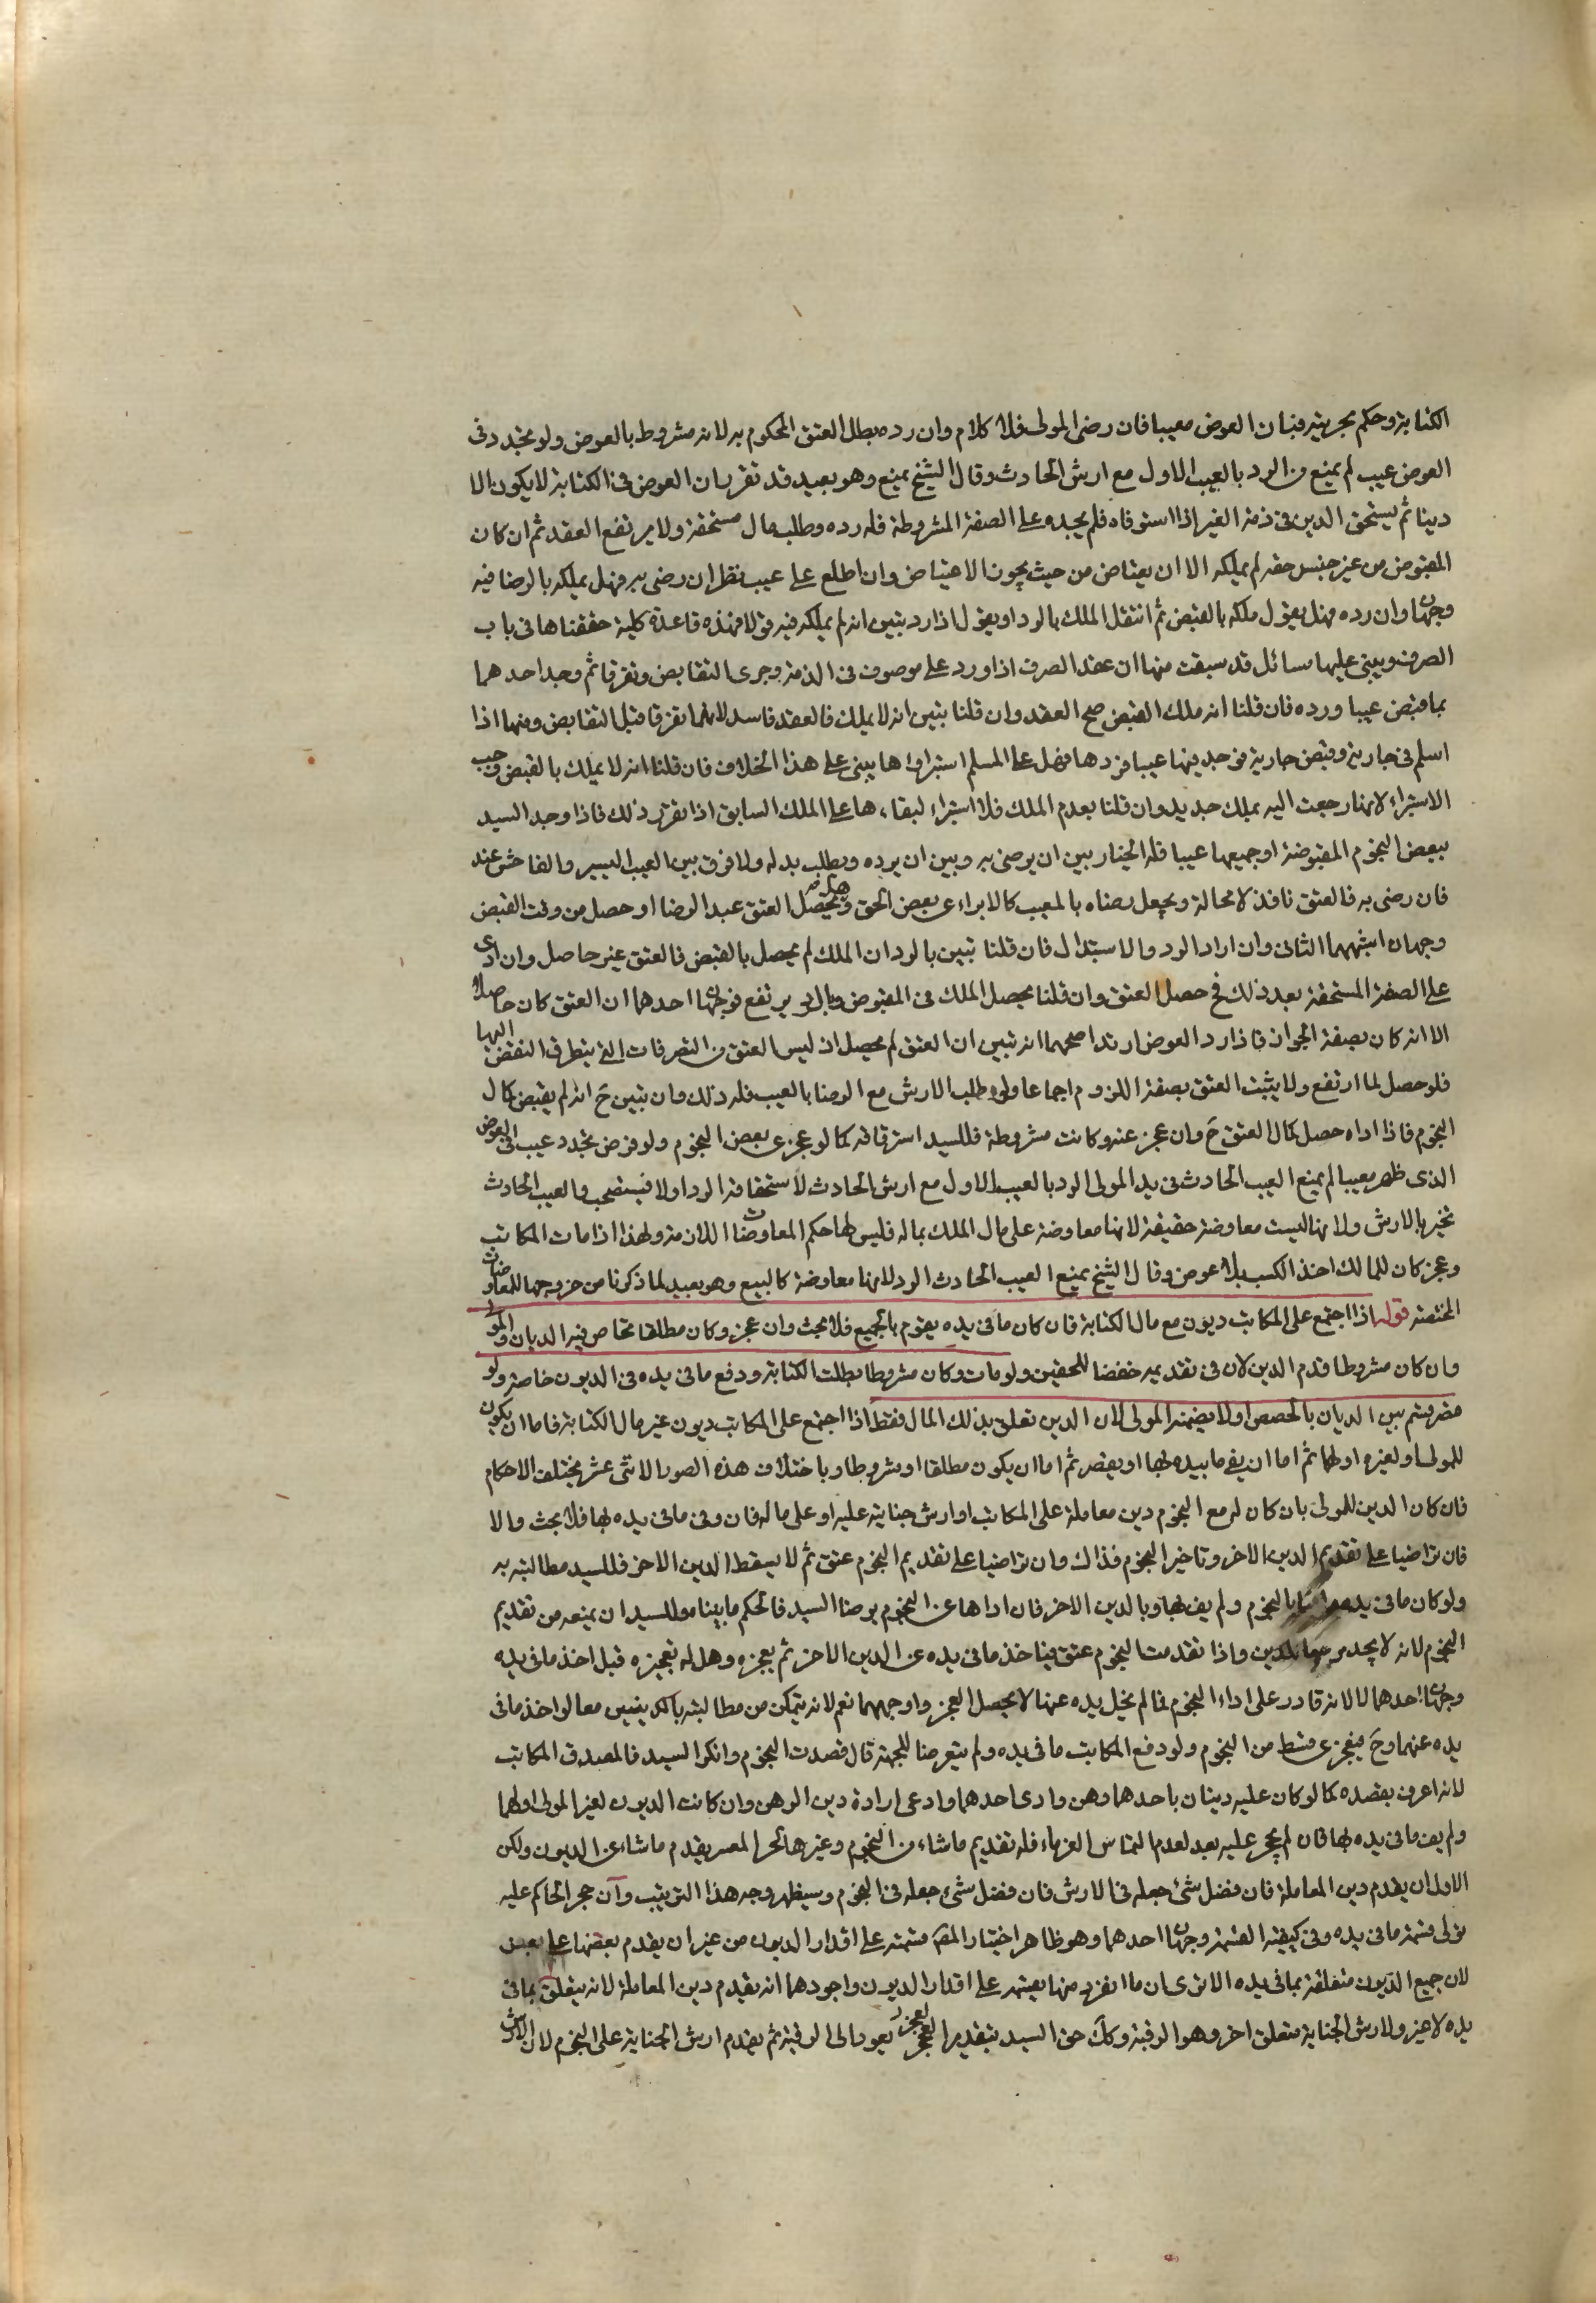 الكتابة وحكم بحريته فبان العوض معيبا فان رضى المولى فلا كلام وان رده بطل العتق المحكوم به لانه مشروط بالعوض ولو تجدد فى
العوض عيب لم يمنع من الرد بالعيب الاول مع ارش الحادث وقال الشيخ يمنع وهو بعيد قد تقرر ان العوض فى الكتابة لا يكون الا
دينا ثم يستحق الدين فى ذمة الغير اذا استوفاه فلم يجده على الصفة المشروطة فله رده وطلب مال مستحقة ولا يرتفع العقد ثم ان كان
المقبوض من غير جنس حقه لم يملكه الا ان يعتاض من حيث يجوز الاعتياض وان اطلع على عيب نظر ان رضى به فهل يملكه بالرضا فيه
وجهان وان رده فهل يقول ملكه بالقبض ثم انتقل الملك بالرد او يقول اذا رد يتبين انه لم يملكه فيه قولا فهذه قاعدة كلية حققناها فى باب
الصرف ويبنى عليها مسائل قد سبقت منها ان عقد الصرف اذا ورد على موصوف فى الذمة وجرى التقابض وتفرقا ثم وجد احدهما
بما قبض عيبا ورده فان قلنا انه ملك القبض صح العقد وان قلنا يتبين انه لا يملك فالعقد فاسد لانهما تفرقا قبل التقابض ومنها اذا
اسلم فى جارية وقبض جارية فوجد بها عيبا فردها فهل على المسلم استبراؤها يبنى على هذا الخلاف فان قلنا انه لا يملك بالقبض وجب
الاستبراء لانها رجعت اليه بملك جديد وان قلنا بعدم الملك فلا استبراء لبقاءها على الملك السابق اذا تقرر ذلك فاذا وجد السيد
ببعض النجوم المقبوضة او جميعها عيبا فله الخيار بين ان يرضى به وبين ان يرده ويطلب بدله ولا فرق بين العيب اليسير والفاحش عند
فان رضى به فالعتق نافذ لا محالة ويجعل رضاه بالمعيب كالابراء عن بعض الحق وهل يحصل العتق عند الرضا او حصل من وقت القبض
وجهان اشبههما الثانى وان اراد الرد والاستبدال فان قلنا تبين بالرد ان الملك لم يحصل بالقبض فالعتق غير حاصل وان ادى
على الصفة المستحقة بعد ذلك فح حصل العتق وان قلنا يحصل الملك فى المقبوض وبالرد يرتفع فوجهان احدهما ان العتق كان حاصلا
الا انه كان بصفة الجواز فاذا رد العوض ارتد اصحهما انه تبين ان العتق لم يحصل اذ ليس العتق من التصرفات التى يتطرق النقض اليها
فلو حصل لما ارتفع ولا يثبت العتق بصفة اللزوم اجماعا ولو طلب الارش مع الرضا بالعيب فله ذلك وان يتبين ح انه لم يقبض كمال
النجوم فاذا اداه حصل كمال العتق ح وان عجز عنه وكانت مشروطة فللسيد استرقاقه كما لو عجز عن بعض النجوم ولو فرض تجدد عيب فى العوض
الذى ظهر معيبا لم يمنع العيب الحادث فى يد المولى الرد بالعيب الاول مع ارش الحادث لاستحقاقه الرد اولا فيستصحب والعيب الحادث
يجبر بالارش ولانها ليست معاوضة حقيقة لانها معاوضة على مال الملك بماله فليس لها حكم المعاوضات اللازمة ولهذا اذا مات المكاتب
وعجز كان للمالك اخذ الكسب بلا عوض وقال الشيخ يمنع العيب الحادث الرد لانها معاوضة كالبيع وهو بعيد لما ذكرنا من خروجها للمعاوضات
المختصة قوله اذا اجتمع على المكاتب ديون مع مال الكتابة فان كان ما فى يده يقوم بالجميع فلا بحث وان عجز وكان مطلقا تحاص فيه الديان والمولى
وان كان مشروطا قدم الدين لان فى تقديمه حفظا للحقين ولو مات وكان مشروطا بطلت الكتابة ودفع ما فى يده فى الديون خاصة ولو
قصر قسم بين الديان بالحصص ولا يضمنه المولى لان الدين تعلق بذلك المال فقط اذا اجتمع على المكاتب ديون غير مال الكتابة فاما ان يكون
للمولى او لغيره او لهما ثم اما ان يفى ما بيده لها او يقصر ثم اما ان يكون مطلقا او مشروطا وباختلاف هذه الصور الاثنى عشر يختلف الاحكام
فان كان الدين للمولى بان كان له مع النجوم دين معاملة على المكاتب او ارش جناية عليه او على ماله فان وفى ما فى يده بها فلا بحث والا
فان تراضيا على تقديم الدين الاخر وتاخير النجوم فذاك وان تراضيا على تقديم النجوم عتق ثم لا يسقط الدين الاخر فللسيد مطالبته به
ولو كان ما فى يده وافيا بالنجوم ولم يف بها وبالدين الاخر فان اداها عن النجوم برضا السيد فالحكم ما بينا وللسيد ان يمنعه من تقديم
النجوم لانه لا يجد مرجعا للدين واذا تقدمت النجوم عتق فياخذ ما فى يده عن الدين الاخر ثم يعجزه وهل له تعجيزه قبل اخذ ما فى يده
وجهان احدهما لا لانه قادر على اداء النجوم فما لم يخل يده عنها لا يحصل العجز واوجههما نعم لانه يتمكن من مطالبته بالدينين معا لو اخذ ما فى
يده عنهما وح فيعجز عن قسط من النجوم ولو دفع المكاتب ما فى يده ولم يتعرضا للجهة قال قصدت النجوم وانكر السيد فالمصدق المكاتب
لانه اعرف بقصده كما لو كان عليه دينان باحدهما رهن وادى احدهما وادعى ارادة دين الرهن وان كانت الديون لغير المولى او لهما
ولم يف ما فى يده بها فان لم يحجر عليه بعد لعدم التماس الغرماء فله تقديم ما شاء من النجوم وغيرها كالحر المعسر يقدم ما شاء من الديون ولكن
الاولى ان يقدم دين المعاملة فان فضل شئ جعله فى الارش فان فضل شئ جعله فى النجوم وسيظهر وجه هذا الترتيب وان حجر الحاكم عليه
تولى قسمة ما فى يده وفى كيفية القسمة وجهان احدهما وهو ظاهر اختيار المص قسمته على اقدار الديون من غير ان يقدم بعضها على بعض
لان جميع الديون متعلقة بما فى يده الا ترى ان ما انفرد منها يقسم على اقدار الديون واجودهما انه يقدم دين المعاملة لانه يتعلق بما فى
يده لا غير ولارش الجناية متعلق اخر وهو الرقبة وكك حق السيد بتقدير العجز يعود الى الرقبة ثم يقدم ارش الجناية على النجوم لان الارش